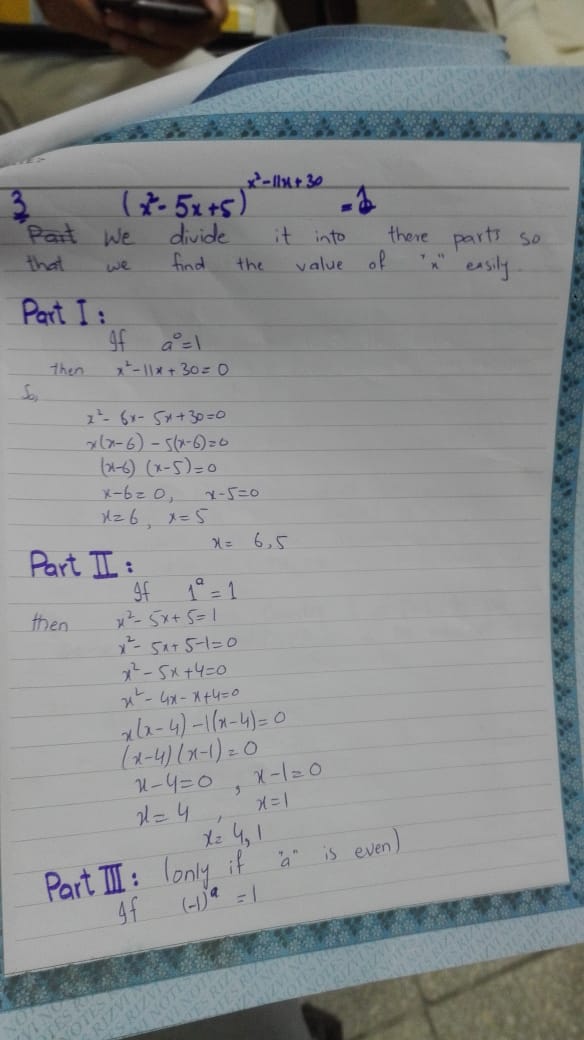 3 (x²- 5x+5)^x²-11x+30 = 1
Part We divide it into there parts so
that we find the value of "x" easily.
Part I :
If a⁰=1
then x²-11x+30=0
So,
x²- 6x- 5x+30=0
x(x-6) - 5(x-6)=0
(x-6) (x-5)=0
x-6=0, x-5=0
x=6, x=5
x= 6,5
Part II :
If 1ᵃ=1
then x²-5x+5=1
x²-5x+5-1=0
x²-5x+4=0
x²-4x-x+4=0
x(x-4)-1(x-4)=0
(x-4)(x-1)=0
x-4=0, x-1=0
x=4, x=1
x=4,1
Part III : (only if "a" is even)
If (-1)ᵃ =1